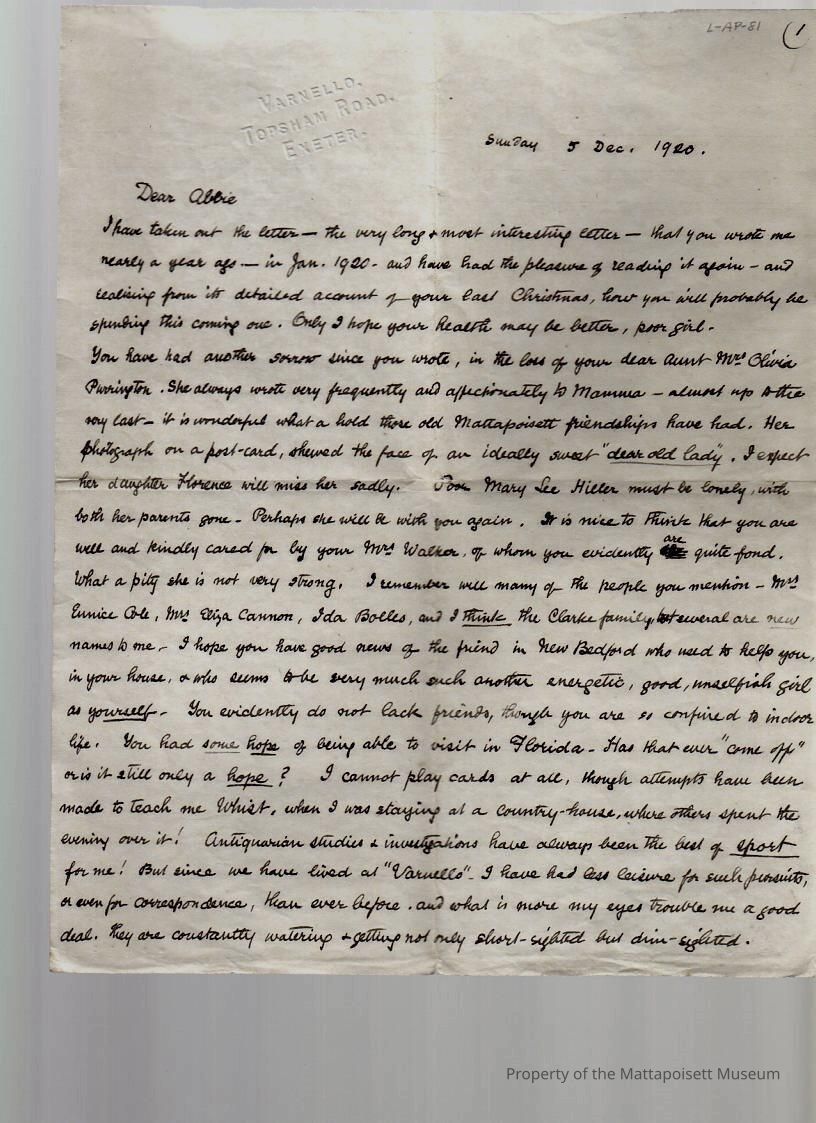 L-AP-81
1
VARNELLO.
TOPSHAM ROAD.
EXETER.
Sunday 5 Dec. 1920.
Dear Abbie
I have taken out the letter — the very long & most interesting letter — that you wrote me
nearly a year ago — in Jan. 1920 - and have had the pleasure of reading it again — and
realising from its detailed account of your last Christmas, how you will probably be
spending this coming one. Only I hope your health may be better, poor girl.
You have had another sorrow since you wrote, in the loss of your dear Aunt Mrs Olivia
Purrington. She always wrote very frequently and affectionately to Mamma — almost up to the
very last — it is wonderful what a hold those old Mattapoisett friendships have had. Her
photograph on a post-card, shewed the face of an ideally sweet "dear old lady". I expect
her daughter Florence will miss her sadly. Poor Mary Lee Hiller must be lonely, with
both her parents gone - Perhaps she will be with you again. It is nice to think that you are
well and kindly cared for by your Mrs Walker, of whom you evidently are quite fond.
What a pity she is not very strong. I remember well many of the people you mention - Mrs
Eunice Cole, Mrs Eliza Cannon, Ida Bolles, and I think the Clarke family, but several are new
names to me. - I hope you have good news of the friend in New Bedford who used to help you,
in your house, & who seems to be very much such another energetic, good, unselfish girl
as yourself. - You evidently do not lack friends, though you are so confined to indoor
life. You had some hope of being able to visit in Florida - Has that ever "come off"
or is it still only a hope? I cannot play cards at all, though attempts have been
made to teach me Whist, when I was staying at a country-house, where others spent the
evening over it! Antiquarian studies & investigations have always been the best of sport
for me! But since we have lived at "Varnello" - I have had less leisure for such pursuits,
or even for correspondence, than ever before. and what is more my eyes trouble me a good
deal. They are constantly watering & getting not only short-sighted but dim-sighted.
Property of the Mattapoisett Museum